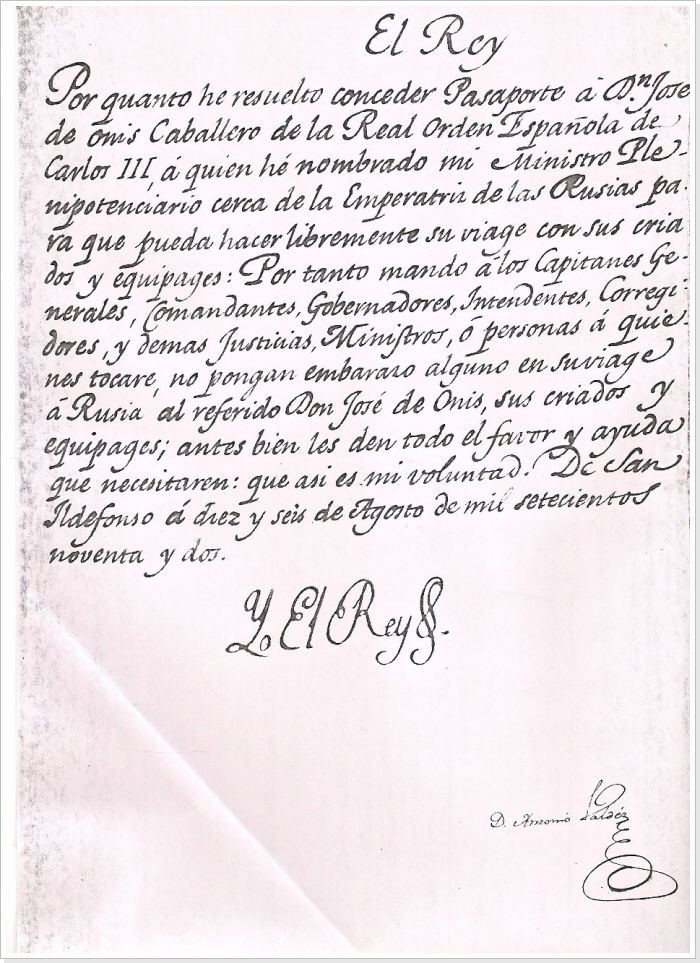 El Rey
Por quanto he resuelto conceder Pasaporte á Dn. Jose
de onis Caballero de la Real Orden Española de
Carlos III, á quien hé nombrado mi Ministro Ple-
nipotenciario cerca de la Emperatriz de las Rusias pa-
ra que pueda hacer libremente su viage con sus cria
dos y equipages: Por tanto mando á los Capitanes Ge-
nerales, Comandantes, Gobernadores, Intendentes, Corregi-
dores, y demas Justicias, Ministros, ó personas á quie-
nes tocare, no pongan embarazo alguno en su viage
á Rusia al referido Don José de Onis, sus criados y
equipages; antes bien les den todo el favor y ayuda
que necesitaren: que asi es mi voluntad. De San
Ildefonso á diez y seis de Agosto de mil setecientos
noventa y dos.
Yo El Rey
D. Antonio Valdés